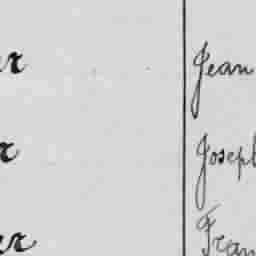 er Jean
r Joseph
er Fran